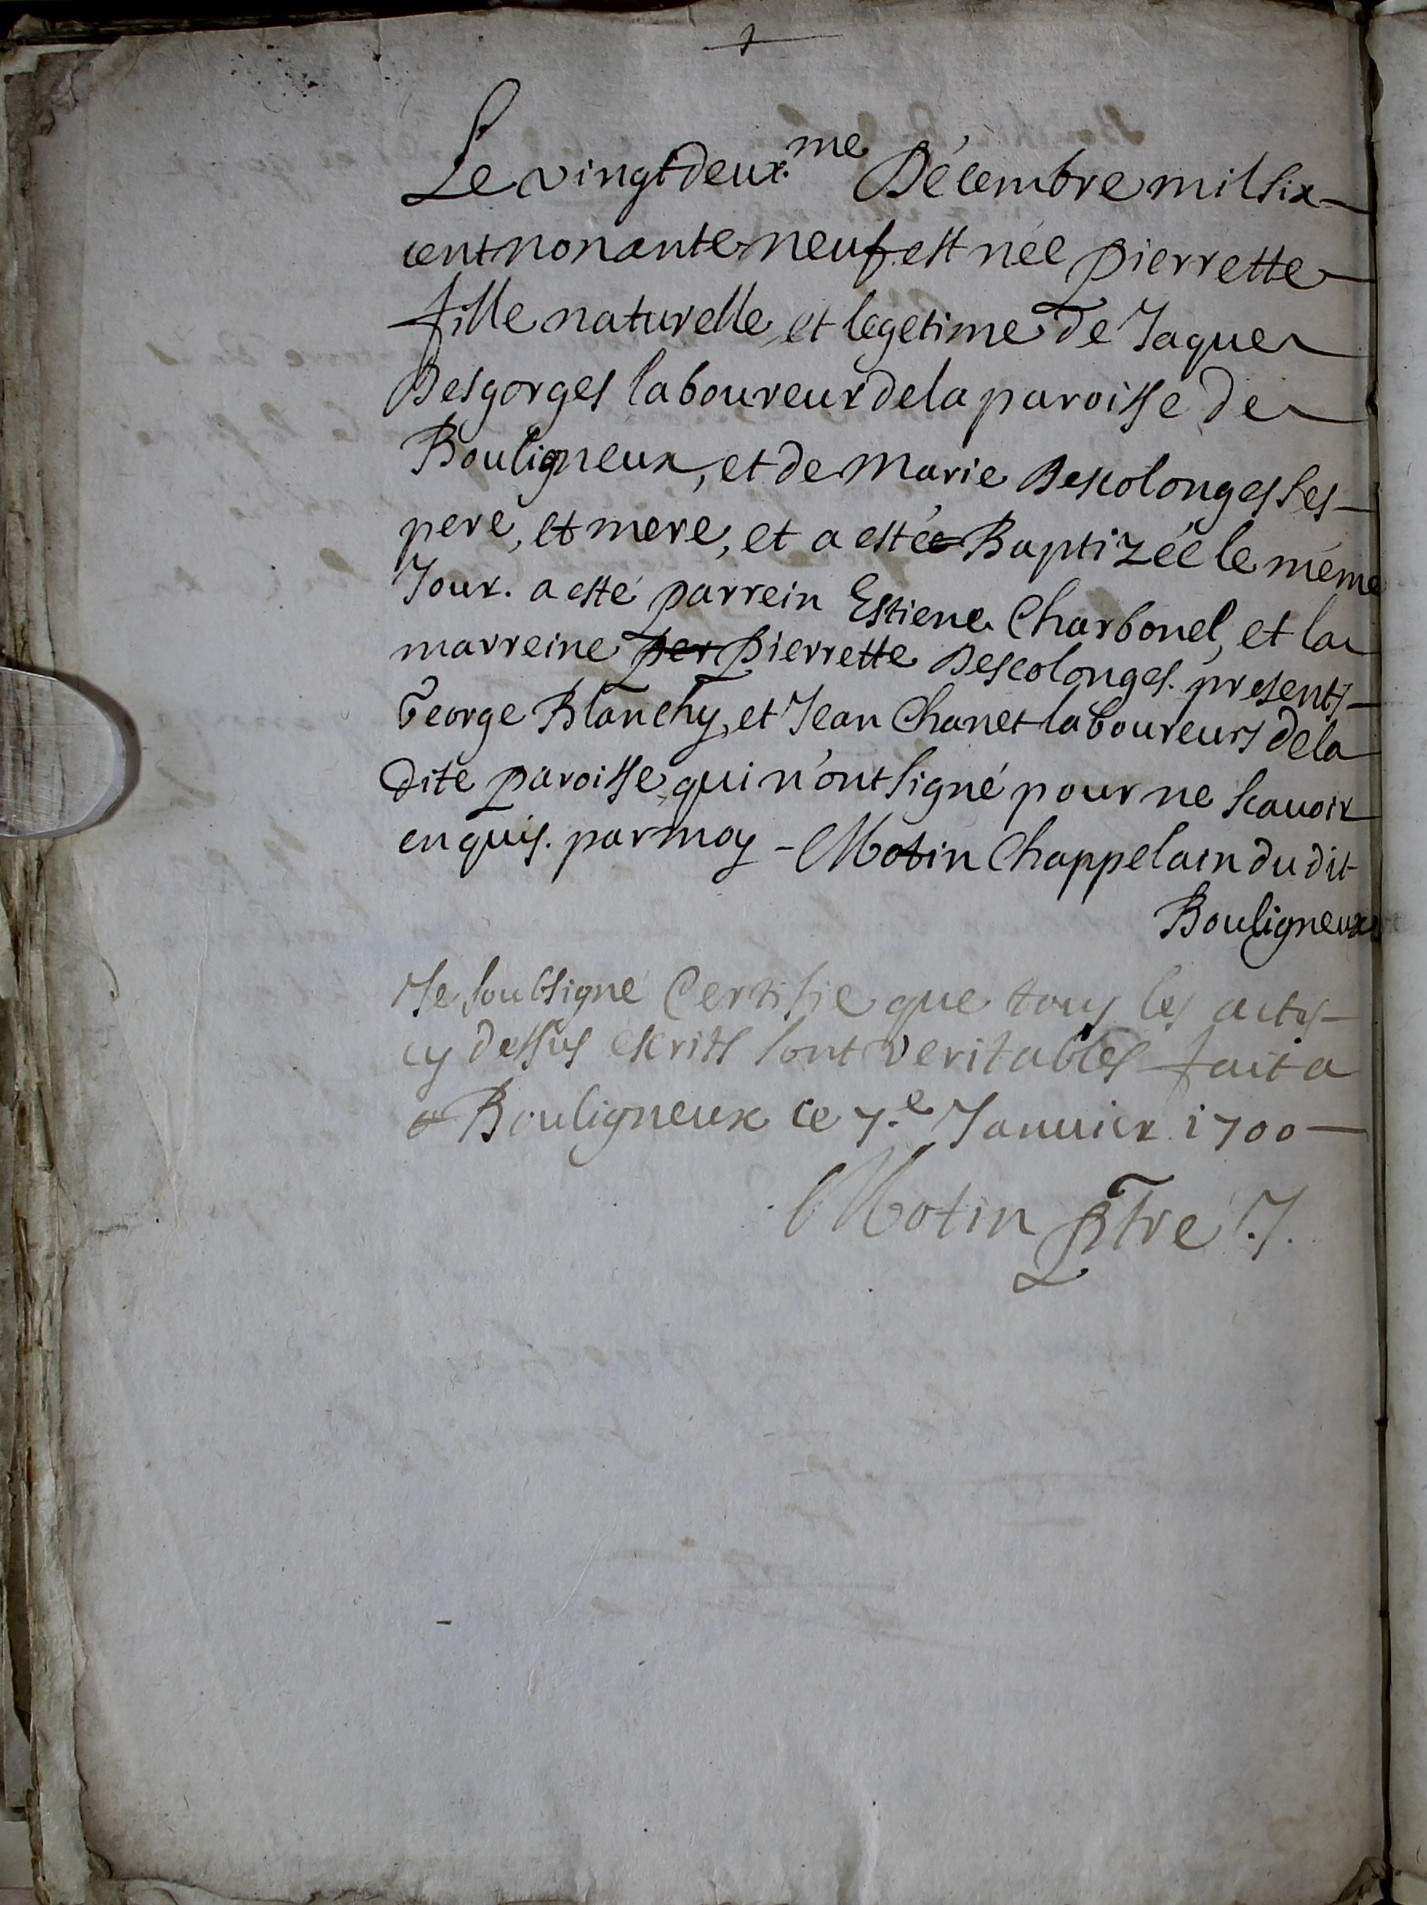 Le vingt deux.me Décembre mil six
cent nonante neuf est née pierrette
fille naturelle et legetime de Jaque
Desgorges laboureur de la paroisse de
Bouligneux, et de Marie Descolonges ses
pere, et mere, et a estée Baptizée le méme
Jour. a esté parrein Estiene Charbonel, et la
marreine per pierrette Descolonges. presents
George Blanchy, et Jean Chanet laboureurs de la
dite paroisse qui n'ont signé pour ne scavoir
enquis. par moy - Motin Chappelain du dit
Bouligneux
Je soubsigné Certifie que tous les actes
cy dessus escrits sont veritables fait a
a Bouligneux ce 7.e Januier 1700
Motin ptre